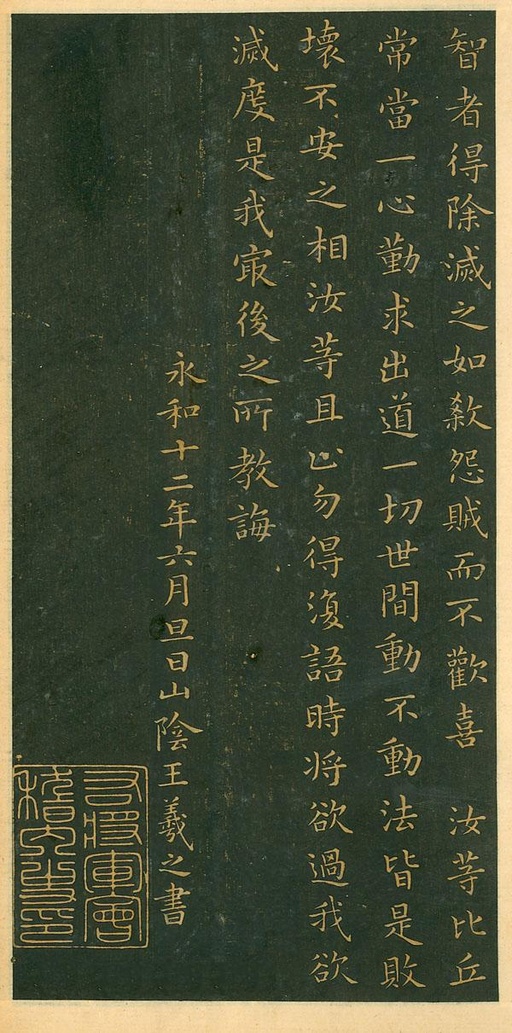 智者得除滅之如殺怨賊而不歡喜　汝等比丘
常當一心勤求出道一切世間動不動法皆是敗
壞不安之相汝等且止勿得復語時将欲過我欲
滅度是我㝡後之所教誨
永和十二年六月旦日山陰王羲之書
右將軍會
稽內史印